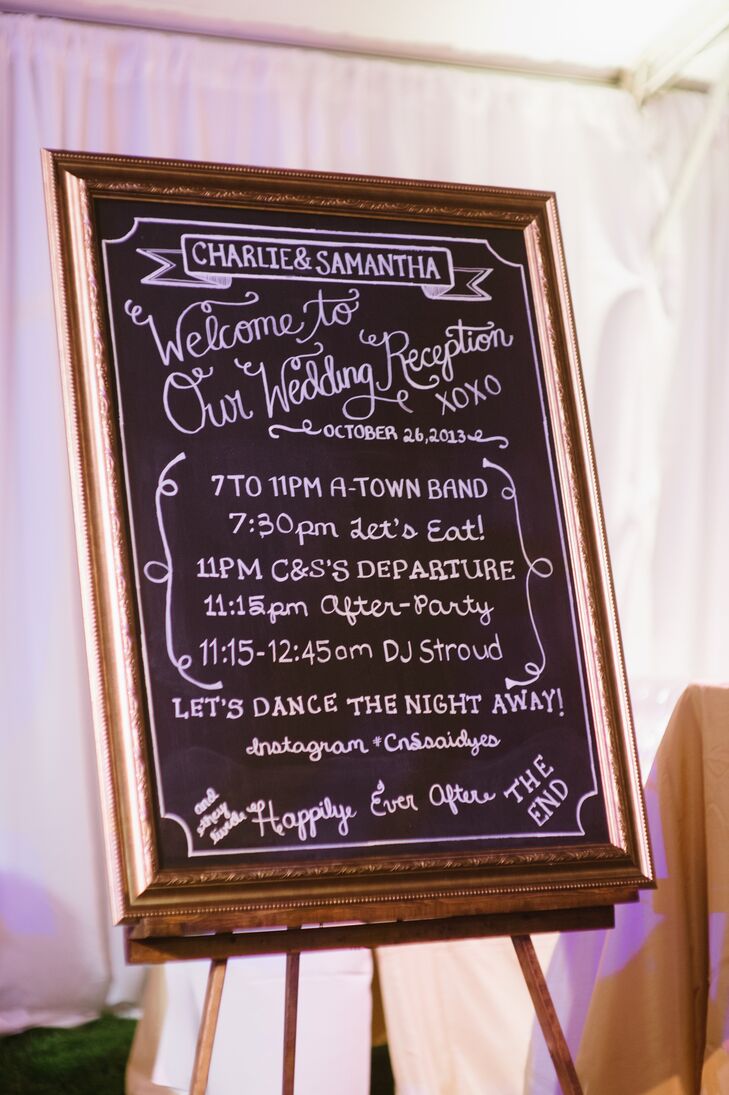 CHARLIE & SAMANTHA
Welcome to
Our Wedding Reception
XOXO
OCTOBER 26, 2013
7 TO 11PM A-TOWN BAND
7:30pm Let's Eat!
11PM C&S'S DEPARTURE
11:15pm After-Party
11:15-12:45am DJ Stroud
LET'S DANCE THE NIGHT AWAY!
Instagram #CnSsaidyes
and they lived Happilye Ever After THE END